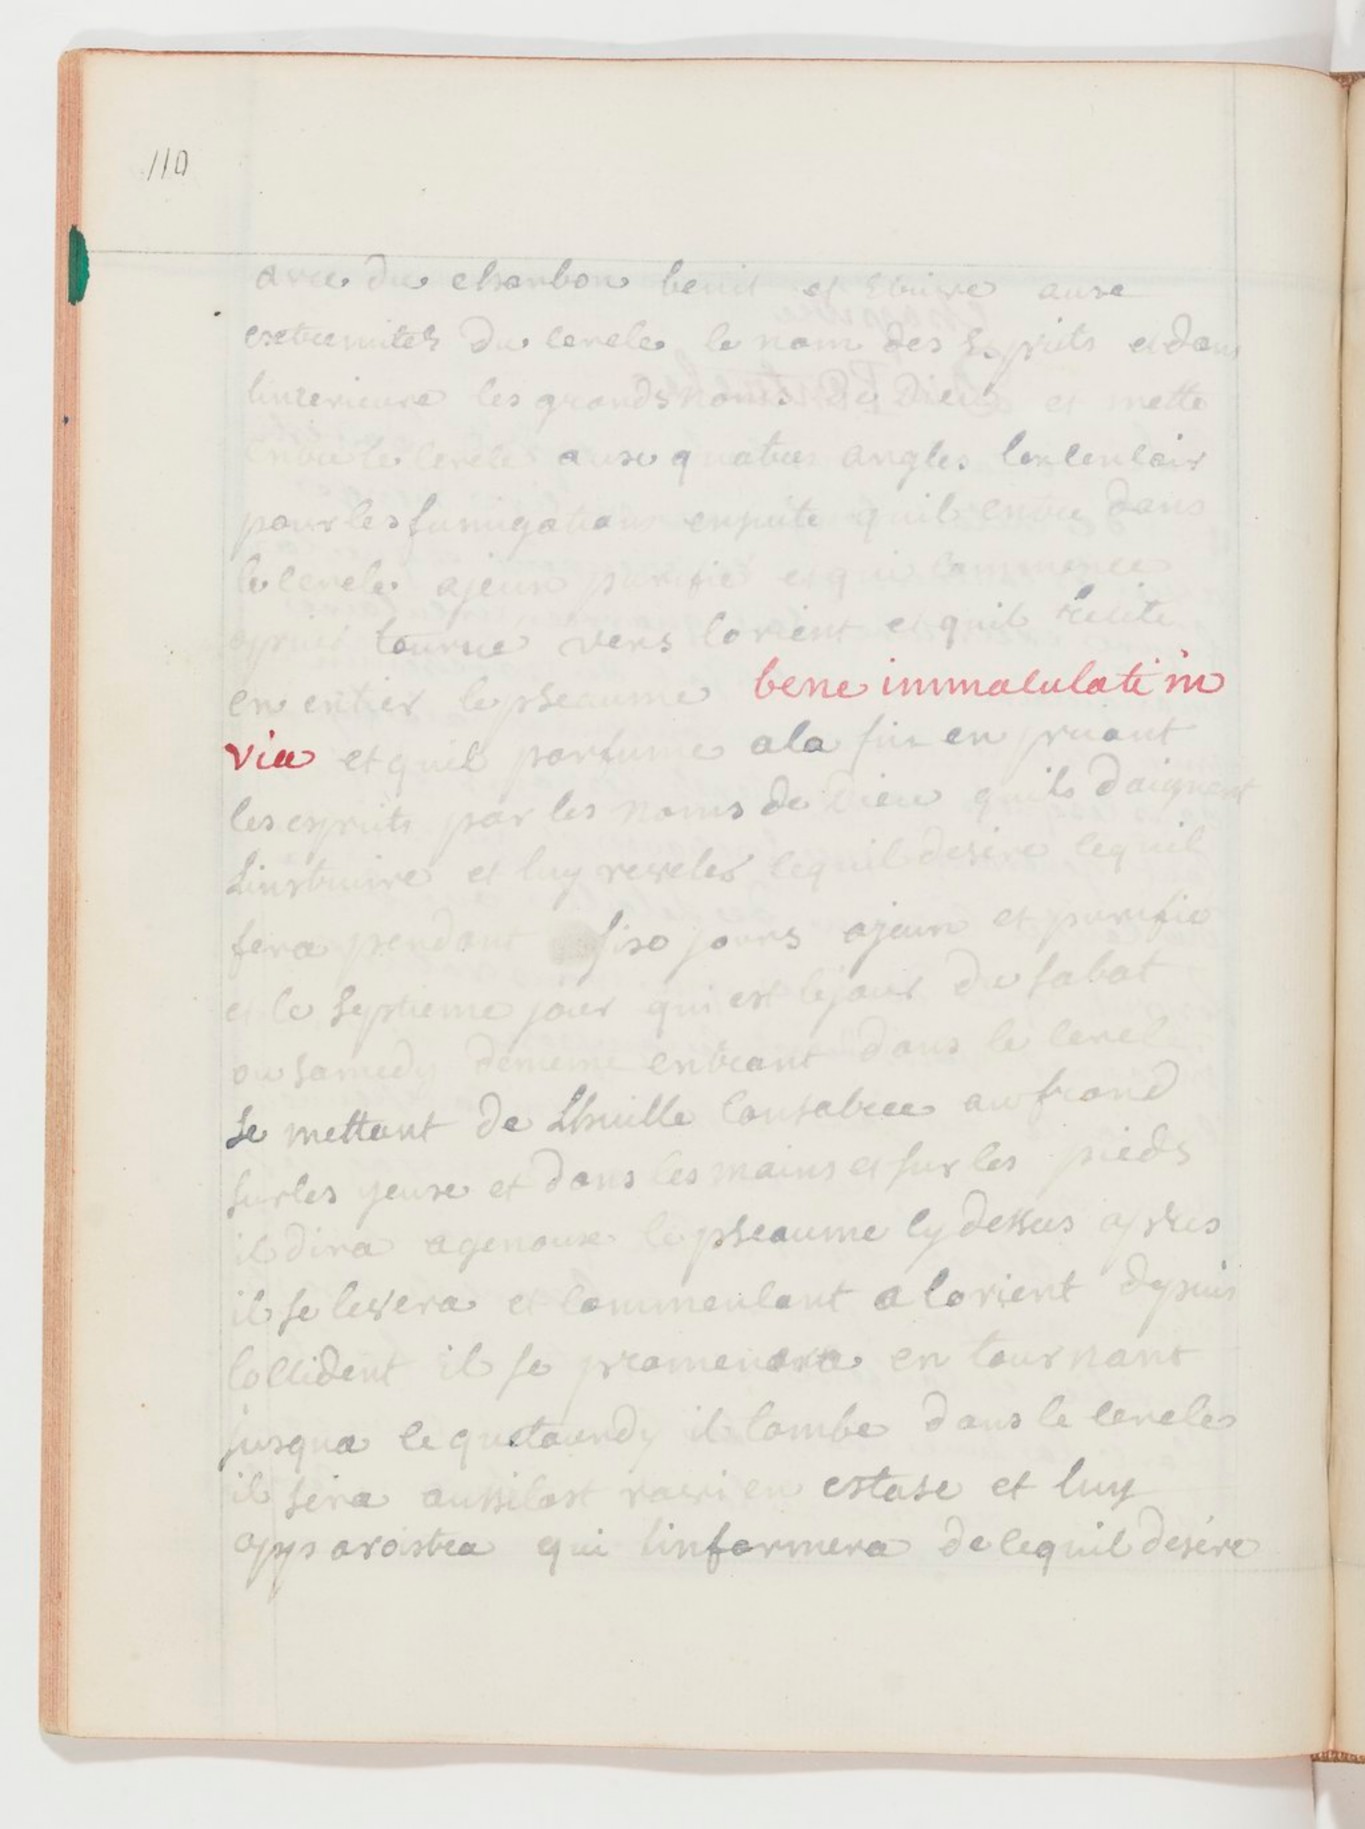 110
avec du charbon benit et Ecrire aux
extremitez du cercle le nom des Esprits et dans
linterieure les grands noms De Dieu et mette
entre le cercle aux quatres angles lencensoir
pour les fumigations ensuite quil entre dans
le cercle ajeun purifié et qui commence
tourne vers lorient et quil Recite
en entier le pseaume bene immaculati in
via et quil parfume a la fin en priant
les esprits par les noms de Dieu quils daignent
Linstruire et luy reveler cequil desire cequil
fera pendant six jours ajeun et purifié
et le septieme jour qui est lejour du sabat
ou samedy dememe entrant dans le cercl
se mettant de Lhuille consacree au frond
sur les yeux et dans les mains et sur les pieds
il dira agenoux le pseaume cy dessus apres
il se levera et commencant a lorient depuis
loccident il se promenera en tournant
jusqua ce quetourdy il tombe dans le cercle
il sera aussitost ravi en estase et luy
apparoistra qui linformera de cequil desire